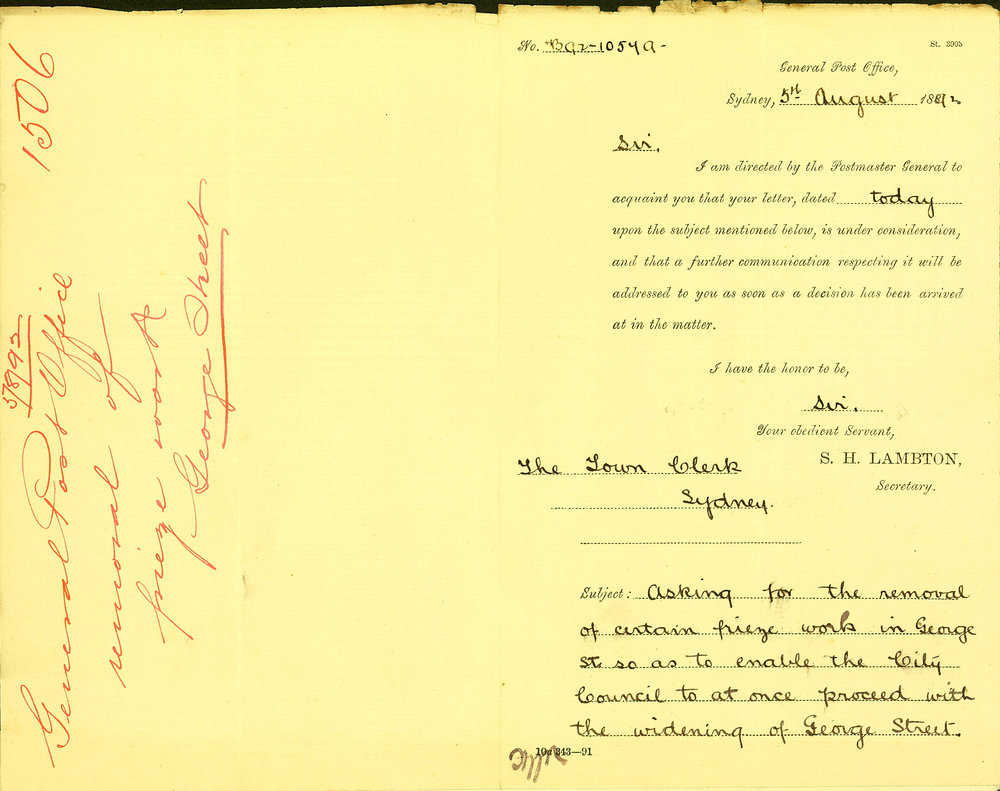 1506
5/8/92
General Post Office
removal of
frieze work
George Street
No. B92-1054a-
St. 3905
General Post Office,
Sydney, 5th August 1892
Sir,
I am directed by the Postmaster General to
acquaint you that your letter, dated today
upon the subject mentioned below, is under consideration,
and that a further communication respecting it will be
addressed to you as soon as a decision has been arrived
at in the matter.
I have the honor to be,
Sir,
Your obedient Servant,
S. H. LAMBTON,
Secretary.
The Town Clerk
Sydney.
Subject: Asking for the removal
of certain frieze work in George
St. so as to enable the City
Council to at once proceed with
the widening of George Street.
343—91